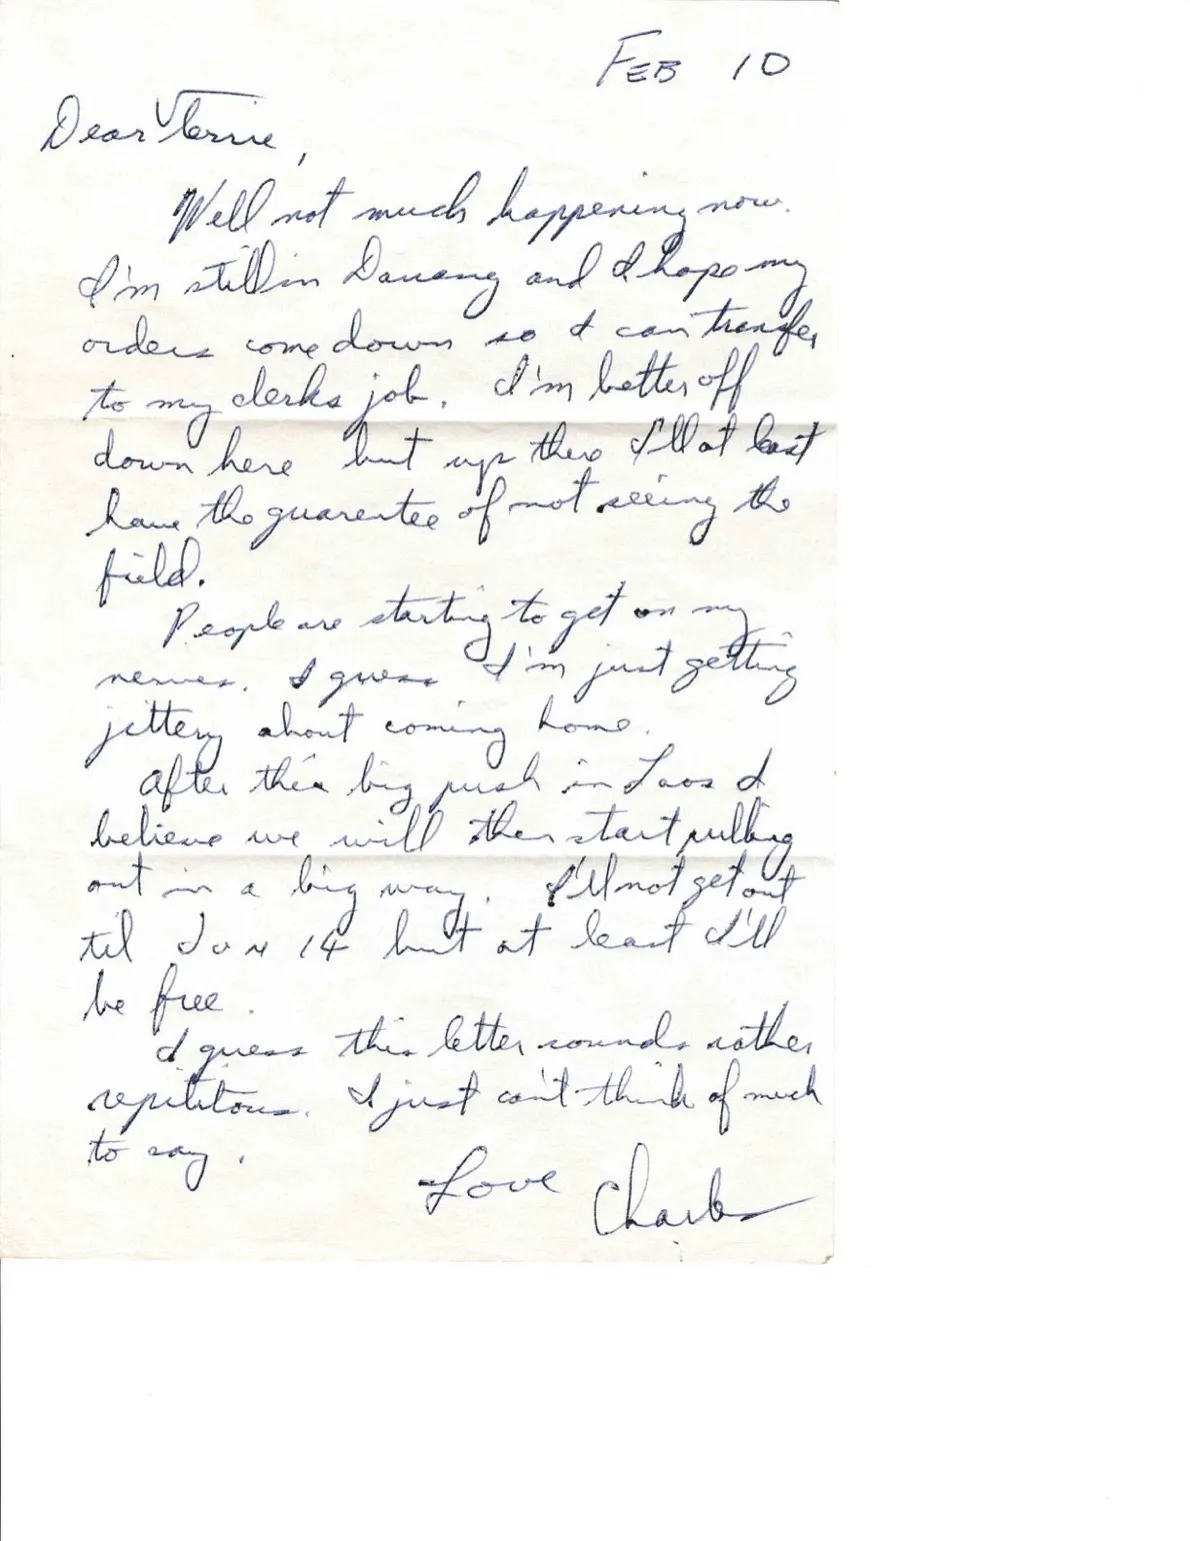 FEB 10
Dear Terrie,
Well not much happening now.
I'm still in Danang and I hope my
orders come down so I can transfer
to my clerks job. I'm better off
down here but up there I'll at least
have the guarentee of not seeing the
field.
People are starting to get on my
nerves. I guess I'm just getting
jittery about coming home.
After this big push in Laos I
believe we will then start pulling
out in a big way. I'll not get out
til Jun 14 but at least I'll
be free.
I guess this letter sounds rather
repititous. I just can't think of much
to say.
Love Charles